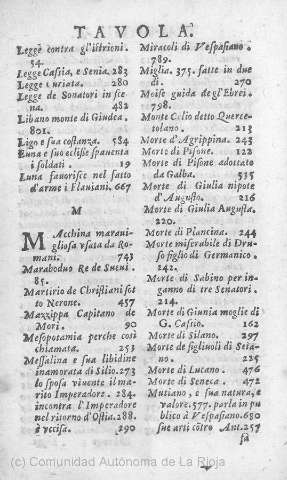 TAVOLA.
Legge contra gl'istrioni.
54.
Legge Cassia, e Senia. 283
Legge curiata. 280
Legge de Sonatori in sce
na. 482
Libano monte di Giudea.
801.
Ligo e sua costanza. 584
Luna e suo eclisse spauenta
i soldati. 19
Luna fauorisce nel fatto
d'arme i Flauiani. 667
M
MAcchina maraui-
gliosa vsata da Ro-
mani. 743
Maraboduo Re de Sueui.
85.
Martirio de Christiani sot
to Nerone. 457
Mazzippa Capitano de
Mori. 90
Mesopotamia perche cosi
chiamata. 253
Messalina e sua libidine
inamorata di Silio. 273
lo sposa viuente il ma-
rito Imperadore. 284.
incontra l'Imperadore
nel ritorno d'Ostia. 288.
è vccisa. 290
Miracoli di Vespasiano.
789.
Miglia. 375. fatte in due
dì. 270
Moise guida de gl'Ebrei.
798.
Monte Celio detto Querce-
tolano. 213
Morte d'Agrippina. 243
Morte di Pisone. 128
Morte di Pisone adottato
da Galba. 535
Morte di Giulia nipote
d'Augusto. 216
Morte di Giulia Augusta.
220.
Morte di Plancina. 244
Morte miserabile di Dru-
so figlio di Germanico.
242.
Morte di Sabino per in-
ganno di tre Senatori.
214.
Morte di Giunia moglie di
G. Cassio. 162
Morte di Silano. 297
Morte de figliuoli di Seia-
no. 225
Morte di Lucano. 476
Morte di Seneca. 472
Mutiano, e sua natura, e
valore. 577. parla in pu
blico à Vespasiano. 650
sue arti cōtro Ant. 257
fà
(c) Comunidad Autónoma de La Rioja